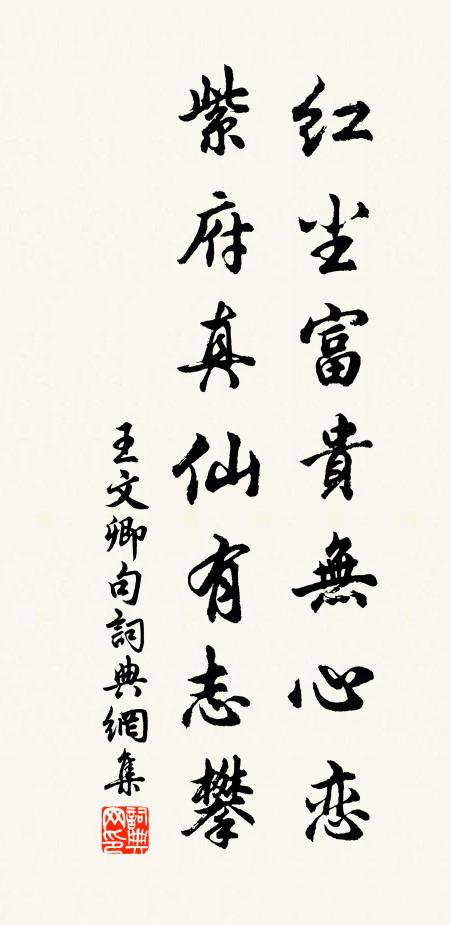 红尘富貴無心恋
紫府真仙有志攀
王文卿句詞典網集
詞典网印